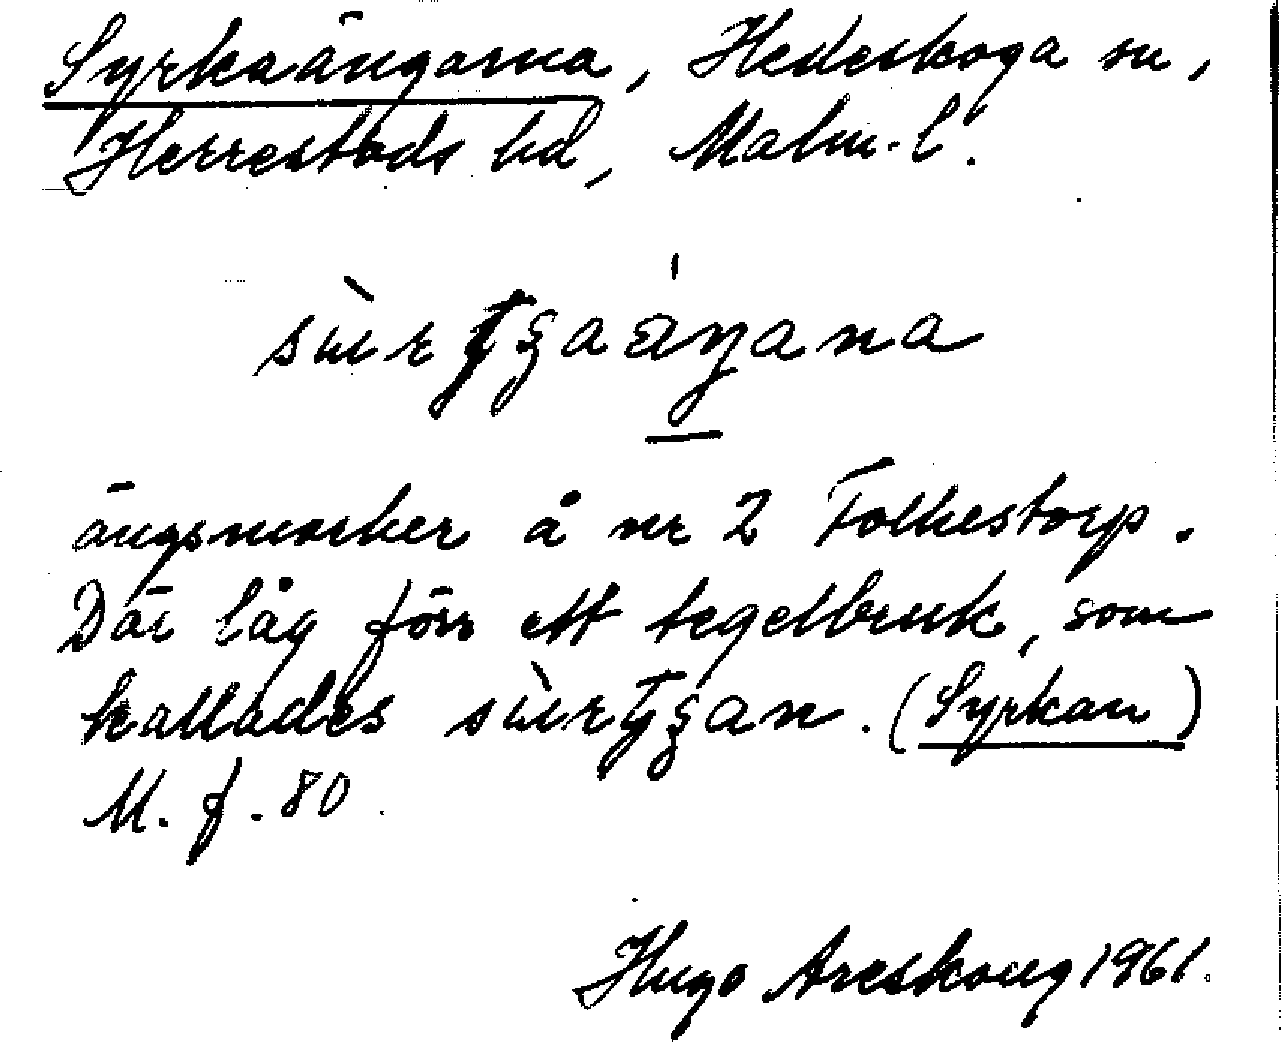 Syrkaängarna, Hedeskoga sn,
Herrestads hd, Malm. l.
ängsmarker å nr 2 Folkestorp.
Där låg förr ett tegelbruk, som
kallades (Syrkan)
M. f. 80.
Hugo Areskoug 1961.